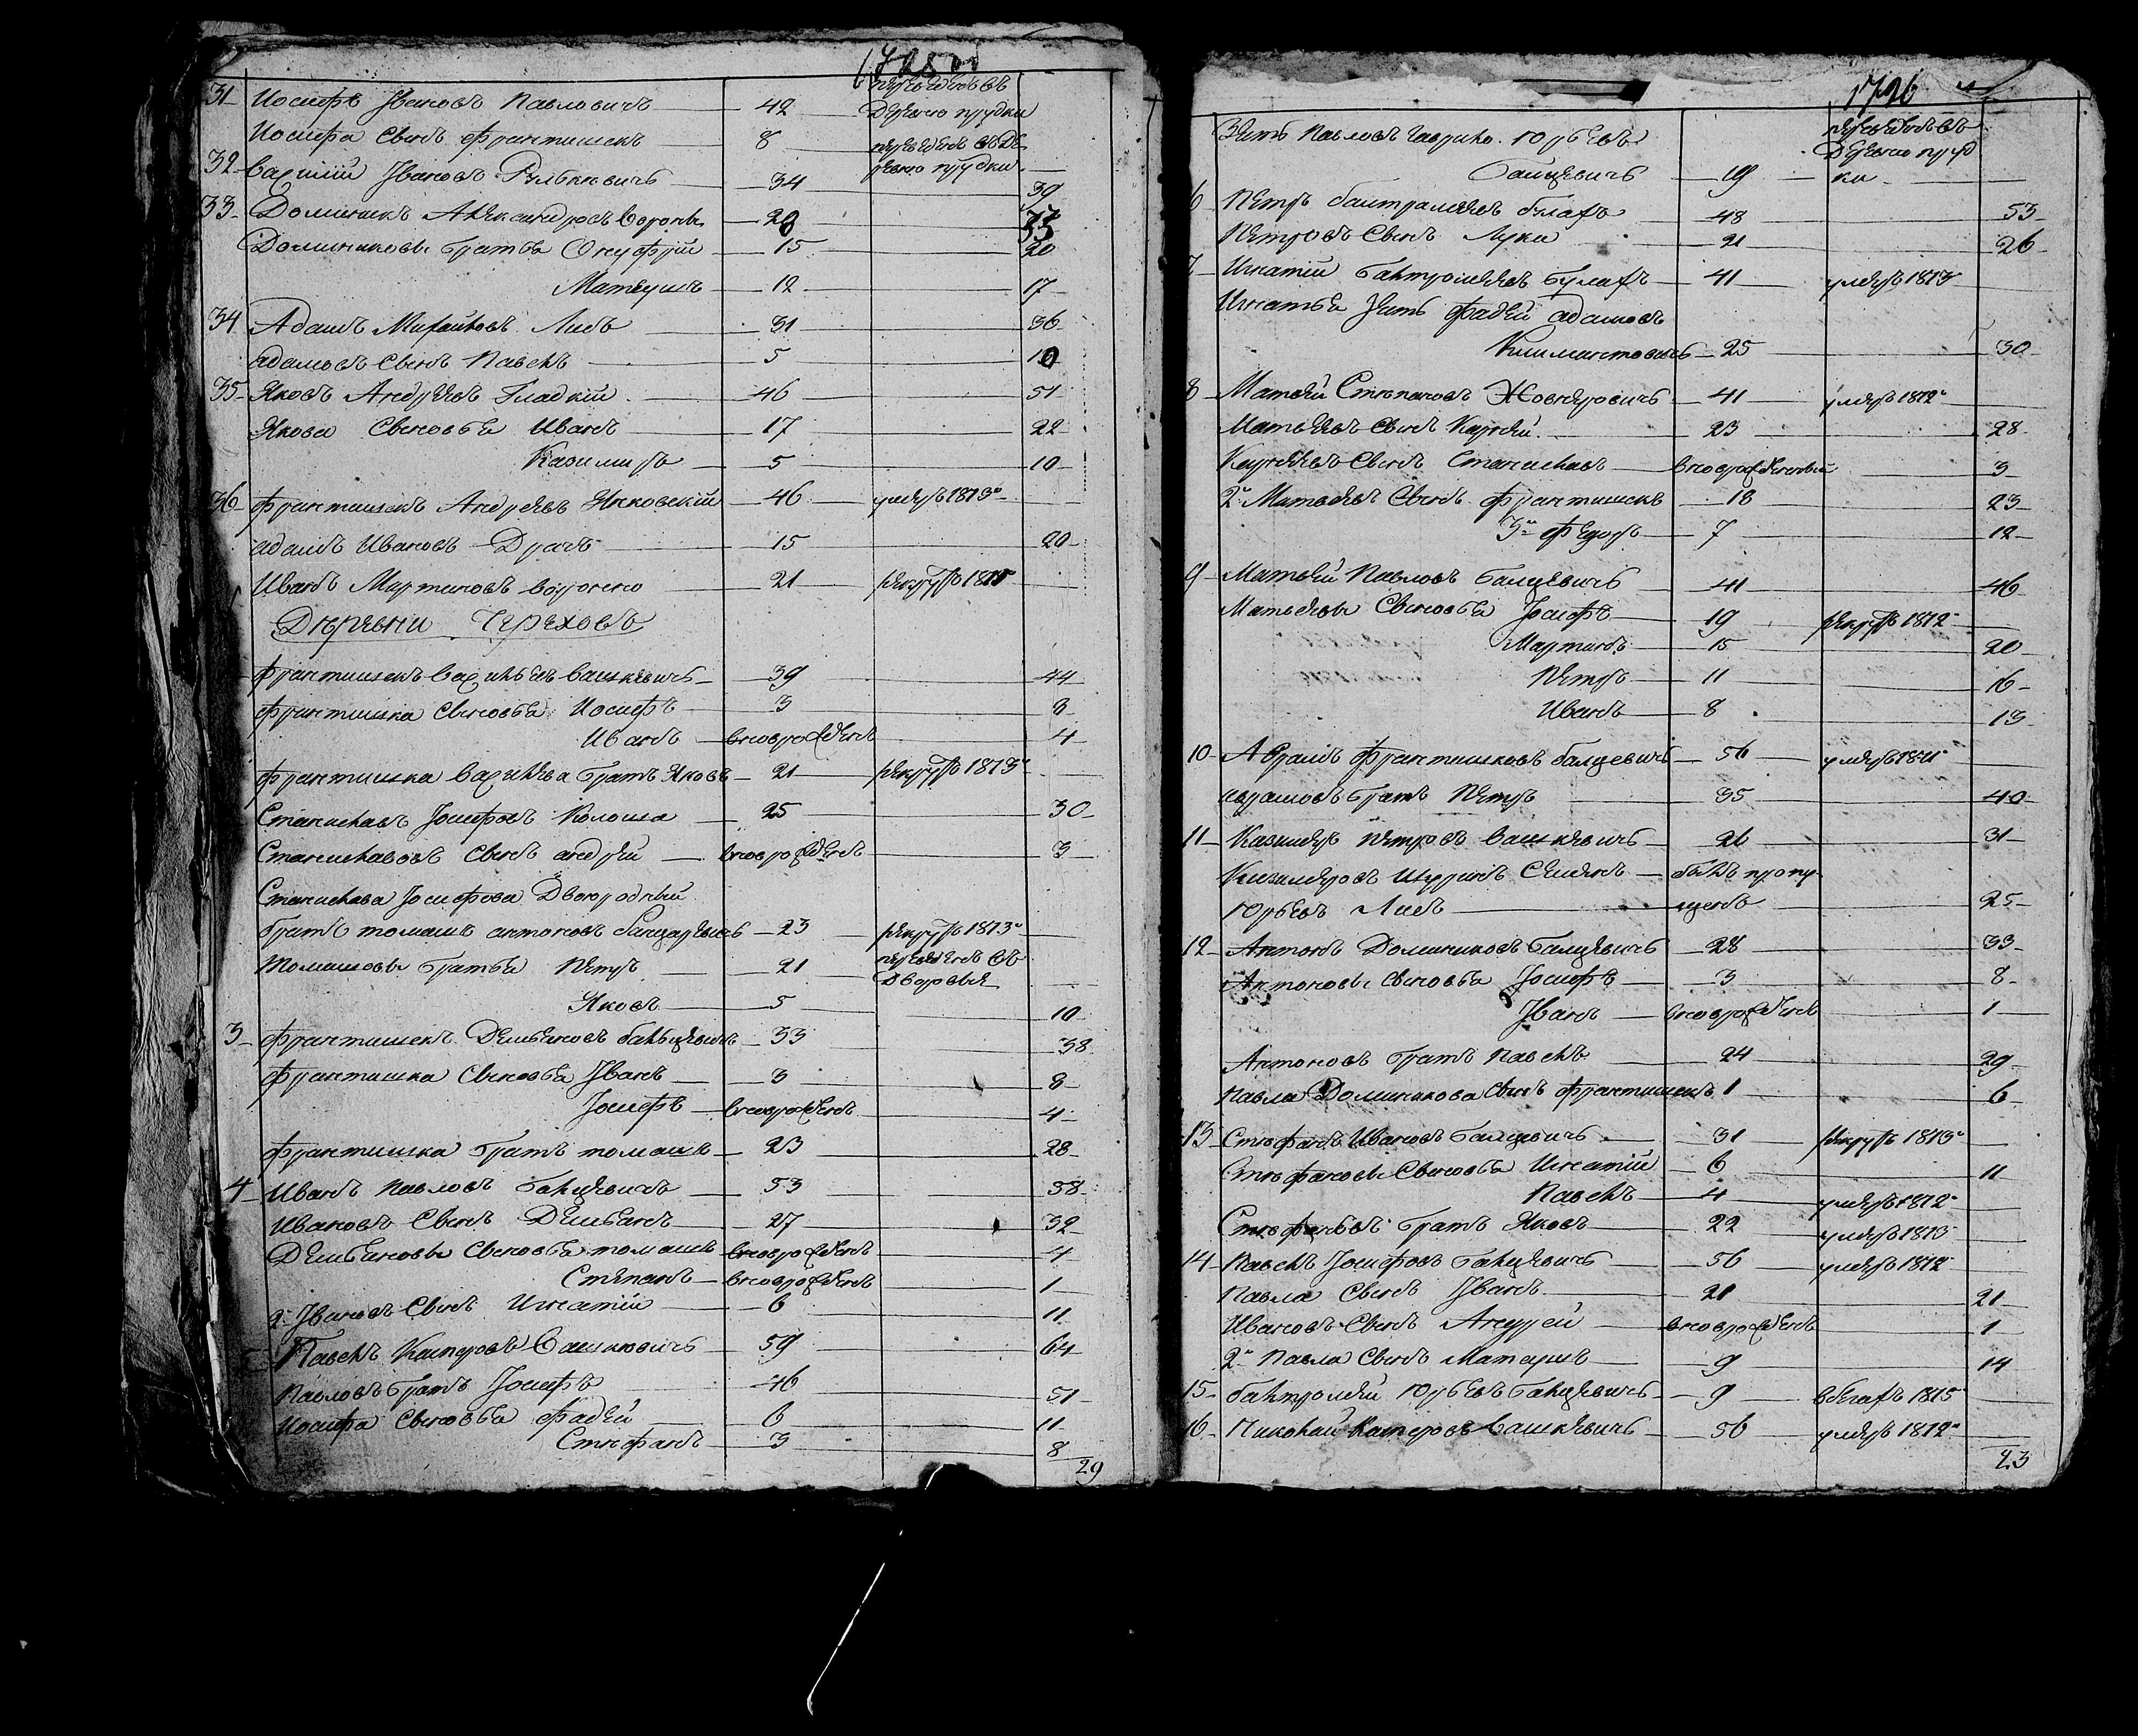 31 Иосифъ Ивановъ Павловичъ 42 переведенъ въ деревню прудки
Иосифа сынъ франтишекъ 8 переведенъ въ де
32 Василій Ивановъ 34 ревню прудки 39
33 Доминикъ Александровъ 28 33
Доминиковы братья Онуфрій 15 20
Матеушъ 12 17
34 Адамъ Михайловъ Лисъ 31 36
адамовъ сынъ Павелъ 5 10
35 Яковъ Андреевъ Гладкій 46 51
Якова сыновья Иванъ 17 22
Казимиръ 5 10
36 франтишекъ Андреевъ Янковскій 46 умеръ 1813
адамъ Ивановъ Драчъ 15 20
Иванъ Мартиновъ 21 рекрутъ 1815
Деревни Череховъ
франтишекъ Васильевъ Вашкевичъ 39 44
франтишка сыновья Иосифъ 3 8
Иванъ вноврожденъ 4
франтишка Васильева братъ Яковъ 21 рекрутъ 1813
Станиславъ Іосифовъ Колоша 25 30
Станиславовъ сынъ андрей вноврожденъ 3
Станислава Іосифова Двоюродный
братъ томашъ антоновъ 23 рекрутъ 1813
томашовы братья Петръ 21 переведенъ въ
дворовыя
Яковъ 5 10
3 франтишекъ Демьяновъ бальцевичъ 33 38
франтишка сыновья Иванъ 3 8
Іосифъ вноврожденъ 4
франтишка братъ томашъ 23 28
4 Иванъ Павловъ Бальцевичъ 53 58
Ивановъ сынъ Демьянъ 27 32
Демьяновы сыновья томашъ вноврожденъ 4
Степанъ вноврожденъ 1
2й Ивановъ сынъ Игнатій 6 11
5 Павелъ Касперовъ Вашкевичъ 59 64
Павловъ братъ Іосифъ 46 51
Иосифа сыновья фадей 6 11
Стефанъ 3 8
29
1726
Зять Павловъ Юрьевъ переведенъ въ
деревню пруд
Балцевичъ 19 ки
6 Петръ балтромеевъ булахъ 48 53
Петровъ сынъ Лука 21 26
7 Игнатій балтромеевъ булахъ 41 умеръ 1813
Игнатья зять фадей адамовъ
Климантовичъ 25 30
8 Матвей Степановъ Жовнеровичъ 41 умеръ 1812
Матвеевъ сынъ Карней 23 28
Карнеевъ сынъ Станиславъ вноврожденный 3
2й Матвеевъ сынъ франтишекъ 18 23
3й федоръ 7 12
9 Матвей Павловъ Балцевичъ 41 46
Матвеевы сыновья Іосифъ 19 рекрутъ 1812
Мартинъ 15 20
Петръ 11 16
Иванъ 8 13
10 Абрамъ франтишковъ балцевичъ 56 умеръ 1811
абрамовъ братъ Петръ 35 40
11 Казимеръ Петровъ Вашкевичъ 26 31
Казимеровъ шуринъ Семенъ былъ пропу
Юрьевъ Лисъ щенъ 25
12 Антонъ Доминиковъ Балцевичъ 28 33
Антоновы сыновья Іосифъ 3 8
Иванъ вноврожденъ 1
Антоновъ братъ Павелъ 24 29
Павла Доминикова сынъ франтишекъ 1 6
13 Стефанъ Ивановъ Балцевичъ 31 рекрутъ 1813
Стефановы сыновья Игнатій 6 11
Павелъ 4 умеръ 1812
Стефановъ братъ Яковъ 22 умеръ 1813
14 Павелъ Іосифовъ Балцевичъ 56 умеръ 1812
Павла сынъ Иванъ 21 21
Ивановъ сынъ Андрей вноврожденъ 1
2й Павла сынъ Матеушъ 9 14
15 балтромей Юрьевъ Балцевичъ 9 въ бегахъ 1815
16 Николай Касперовъ Вашкевичъ 56 умеръ 1812
23